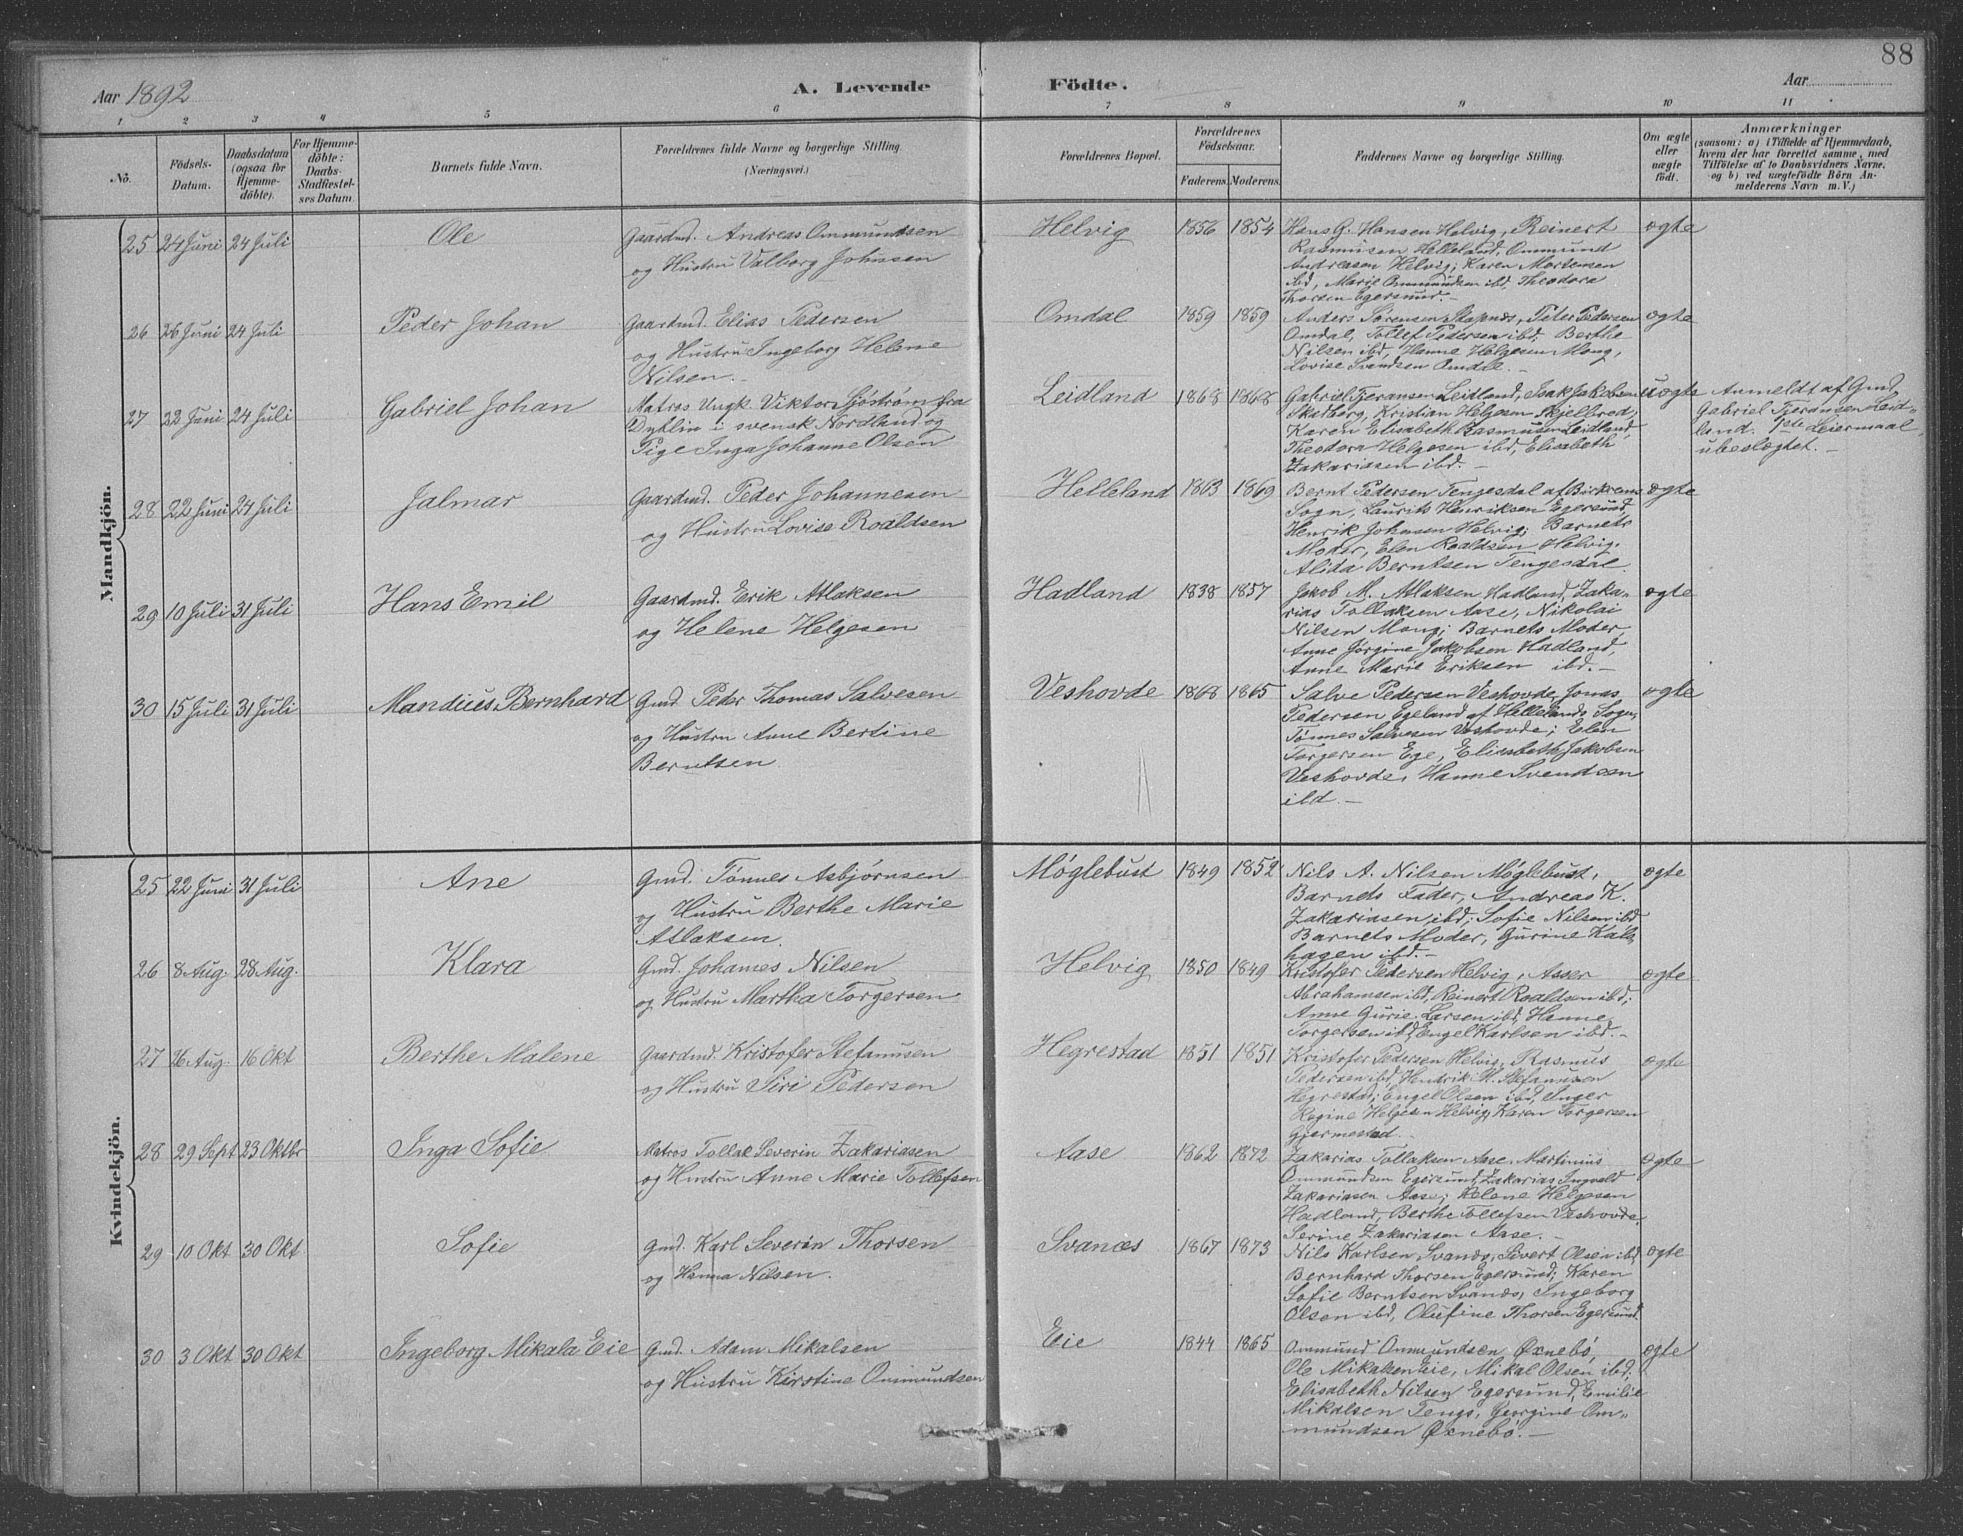 88
Aar 1892
A. Levende Födte.
Aar
1 2 3 4 5 6 7 8 9 10 11
No.
Födsels-Datum.
Daabsdatum (ogsaa for Hjemme-döbte).
For Hjemme-döbte: Daabs-Stadfæstel-ses Datum.
Barnets fulde Navn.
Forældrenes fulde Navne og borgerlige Stilling.
(Næringsvei.)
Forældrenes Bopæl.
Forældrenes Födselsaar.
Faderens. Moderens.
Faddernes Navne og borgerlige Stilling.
Om ægte eller uægte födt.
Anmærkninger
(saasom: a) i Tilfælde af Hjemmedaab,
hvem der har forrettet samme, med
Tilföielse af to Daabsvidners Navne,
og b) ved uægtefödte Börn An-
melderens Navn m. V.)
Mandkjön.
25 24 Juni 24 Juli Ole
Gaardmd. Andreas Ommundsen
og Hustru Valborg Johnsen
Helvig 1856 1854
Hans G. Hansen Helvig, Reinert
Rasmusen Helleland, Ommund
Andreasen Helvig; Karen Mortensen
ibd, Marie Ommundsen ibd, Theodora
Thorsen Egersund.-
ægte
26 26 Juni 24 Juli Peder Johan
Gaardmd. Elias Pedersen
og Hustru Ingeborg Helene
Nilsen.-
Omdal 1859 1859
Anders Sørensen Skapnes, Peter Pedersen
Omdal, Tollef Pedersen ibd; Berthe
Nilsen ibd, Hanne Helgesen Mong,
Lovise Svendsen Omdal.-
ægte
27 22 Juni 24 Juli Gabriel Johan
Matros Ungk. Viktor Sjøstrøm fra
Dyblin i svensk Nordland og
Pige Inga Johanne Olsen
Leidland 1868 1868
Gabriel Tjeransen Leidland, Isak Jakobsen
Skarborg, Kristian Helgesen Skjelbred;
Karen Elisabeth Rasmusen Leidland,
Theodora Helgesen ibd, Elisabeth
Zakariassen ibd.-
uægte
Anmeldt af Gmd.
Gabriel Tjeransen Leid-
land. 1ste Leiermaal,
ubeslægtet.-
28 22 Juni 24 Juli Jalmar
Gaardmd. Peder Johannesen
og Hustru Lovise Roaldsen
Helleland 1863 1869
Bernt Pedersen Tengesdal af Birkrems
Sogn, Laurits Henriksen Egersund,
Henrik Johnsen Helvig; Barnets
Moder, Elen Roaldsen Helvig,
Alida Berntsen Tengesdal.
ægte
29 10 Juli 31 Juli Hans Emil
Gaardmd. Erik Atlaksen
og Helene Helgesen
Hadland 1838 1857
Jakob M. Atlaksen Hadland, Zaka-
rias Tollaksen Aase, Nikolai
Nilsen Mong; Barnets Moder,
Anne Jørgine Jakobsen Hadland,
Anne Marie Eriksen ibd.-
ægte
30 15 Juli 31 Juli Mandius Bernhard
Gmd Peder Thomas Salvesen
og Hustru Anne Bertine
Berntsen
Veshovde 1868 1865
Salve Pedersen Veshovde, Jonas
Pedersen Egeland af Hellelands Sogn,
Tønnes Salvesen Veshovde; Elen
Torgersen Ege, Elisabeth Jakobsen
Veshovde, Hanne Svendsen
ibd.-
ægte
Kvindekjön.
25 22 Juni 31 Juli Ane
Gmd. Tønnes Asbjørnsen
og Hustru Berthe Marie
Atlaksen.
Møglebust 1849 1852
Nils A. Nilsen Møglebust,
Barnets Fader, Andreas K.
Zakariasen ibd; Sofie Nilsen ibd
Barnets Moder, Gurine Kals-
hagen ibd.-
ægte
26 8 Aug. 28 Aug. Klara
Gmd. Johannes Nilsen
og Hustru Martha Torgersen
Helvig 1850 1849
Kristofer Pedersen Helvig, Asser
Abrahamsen ibd, Reinert Roaldsen ibd;
Anne Gurie Larsen ibd, Hanne
Torgersen ibd, Engel Karlsen ibd.-
ægte
27 26 Aug. 16 Okt Berthe Malene
Gaardmd. Kristofer Stefanusen
og Hustru Siri Pedersen
Hegrestad 1851 1851
Kristofer Pedersen Helvig, Rasmus
Pedersen ibd, Hendrik M. Stefanusen
Hegrestad; Engel Olsen ibd, Inger
Regine Helgesen Helvig, Karen Torgersen
Gjermestad.
ægte
28 29 Sept 23 Oktbr Inga Sofie
Matros Tollak Severin Zakariasen
og Hustru Anne Marie Tollefsen
Aase 1862 1872
Zakarias Tollaksen Aase, Martinius
Ommundsen Egersund, Zakarias Ingvald
Zakariasen Aase; Helene Helgesen
Hadland, Berthe Tollefsen Veshovde,
Serine Zakariasen Aase.-
ægte
29 10 Okt 30 Okt Sofie
Gmd. Karl Severin Thorsen
og Hanna Nilsen.
Svanæs 1867 1873
Nils Karlsen Svanæs, Sivert Olsen ibd,
Bernhard Thorsen Egersund; Karen
Sofie Berntsen Svanæs, Ingeborg
Olsen ibd, Olufine Thorsen Egersund
ægte
30 3 Okt 30 Okt Ingeborg Mikala Eie
Gmd. Adam Mikalsen
og Hustru Kirstine Ommundsen
Eie 1844 1865
Ommund Ommundsen Øxnebø,
Ole Mikalsen Eie, Mikal Olsen ibd;
Elisabeth Nilsen Egersund, Emilie
Mikalsen Tengs, Georgine Om-
mundsen Øxnebø.-
ægte